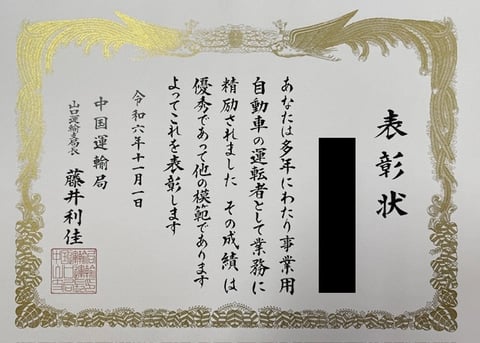 表彰状
あなたは多年にわたり事業用
自動車の運転者として業務に
精励されました その成績は
優秀であって他の模範であります
よってこれを表彰します
令和六年十一月一日
中国運輸局
山口運輸支局長
藤井利佳